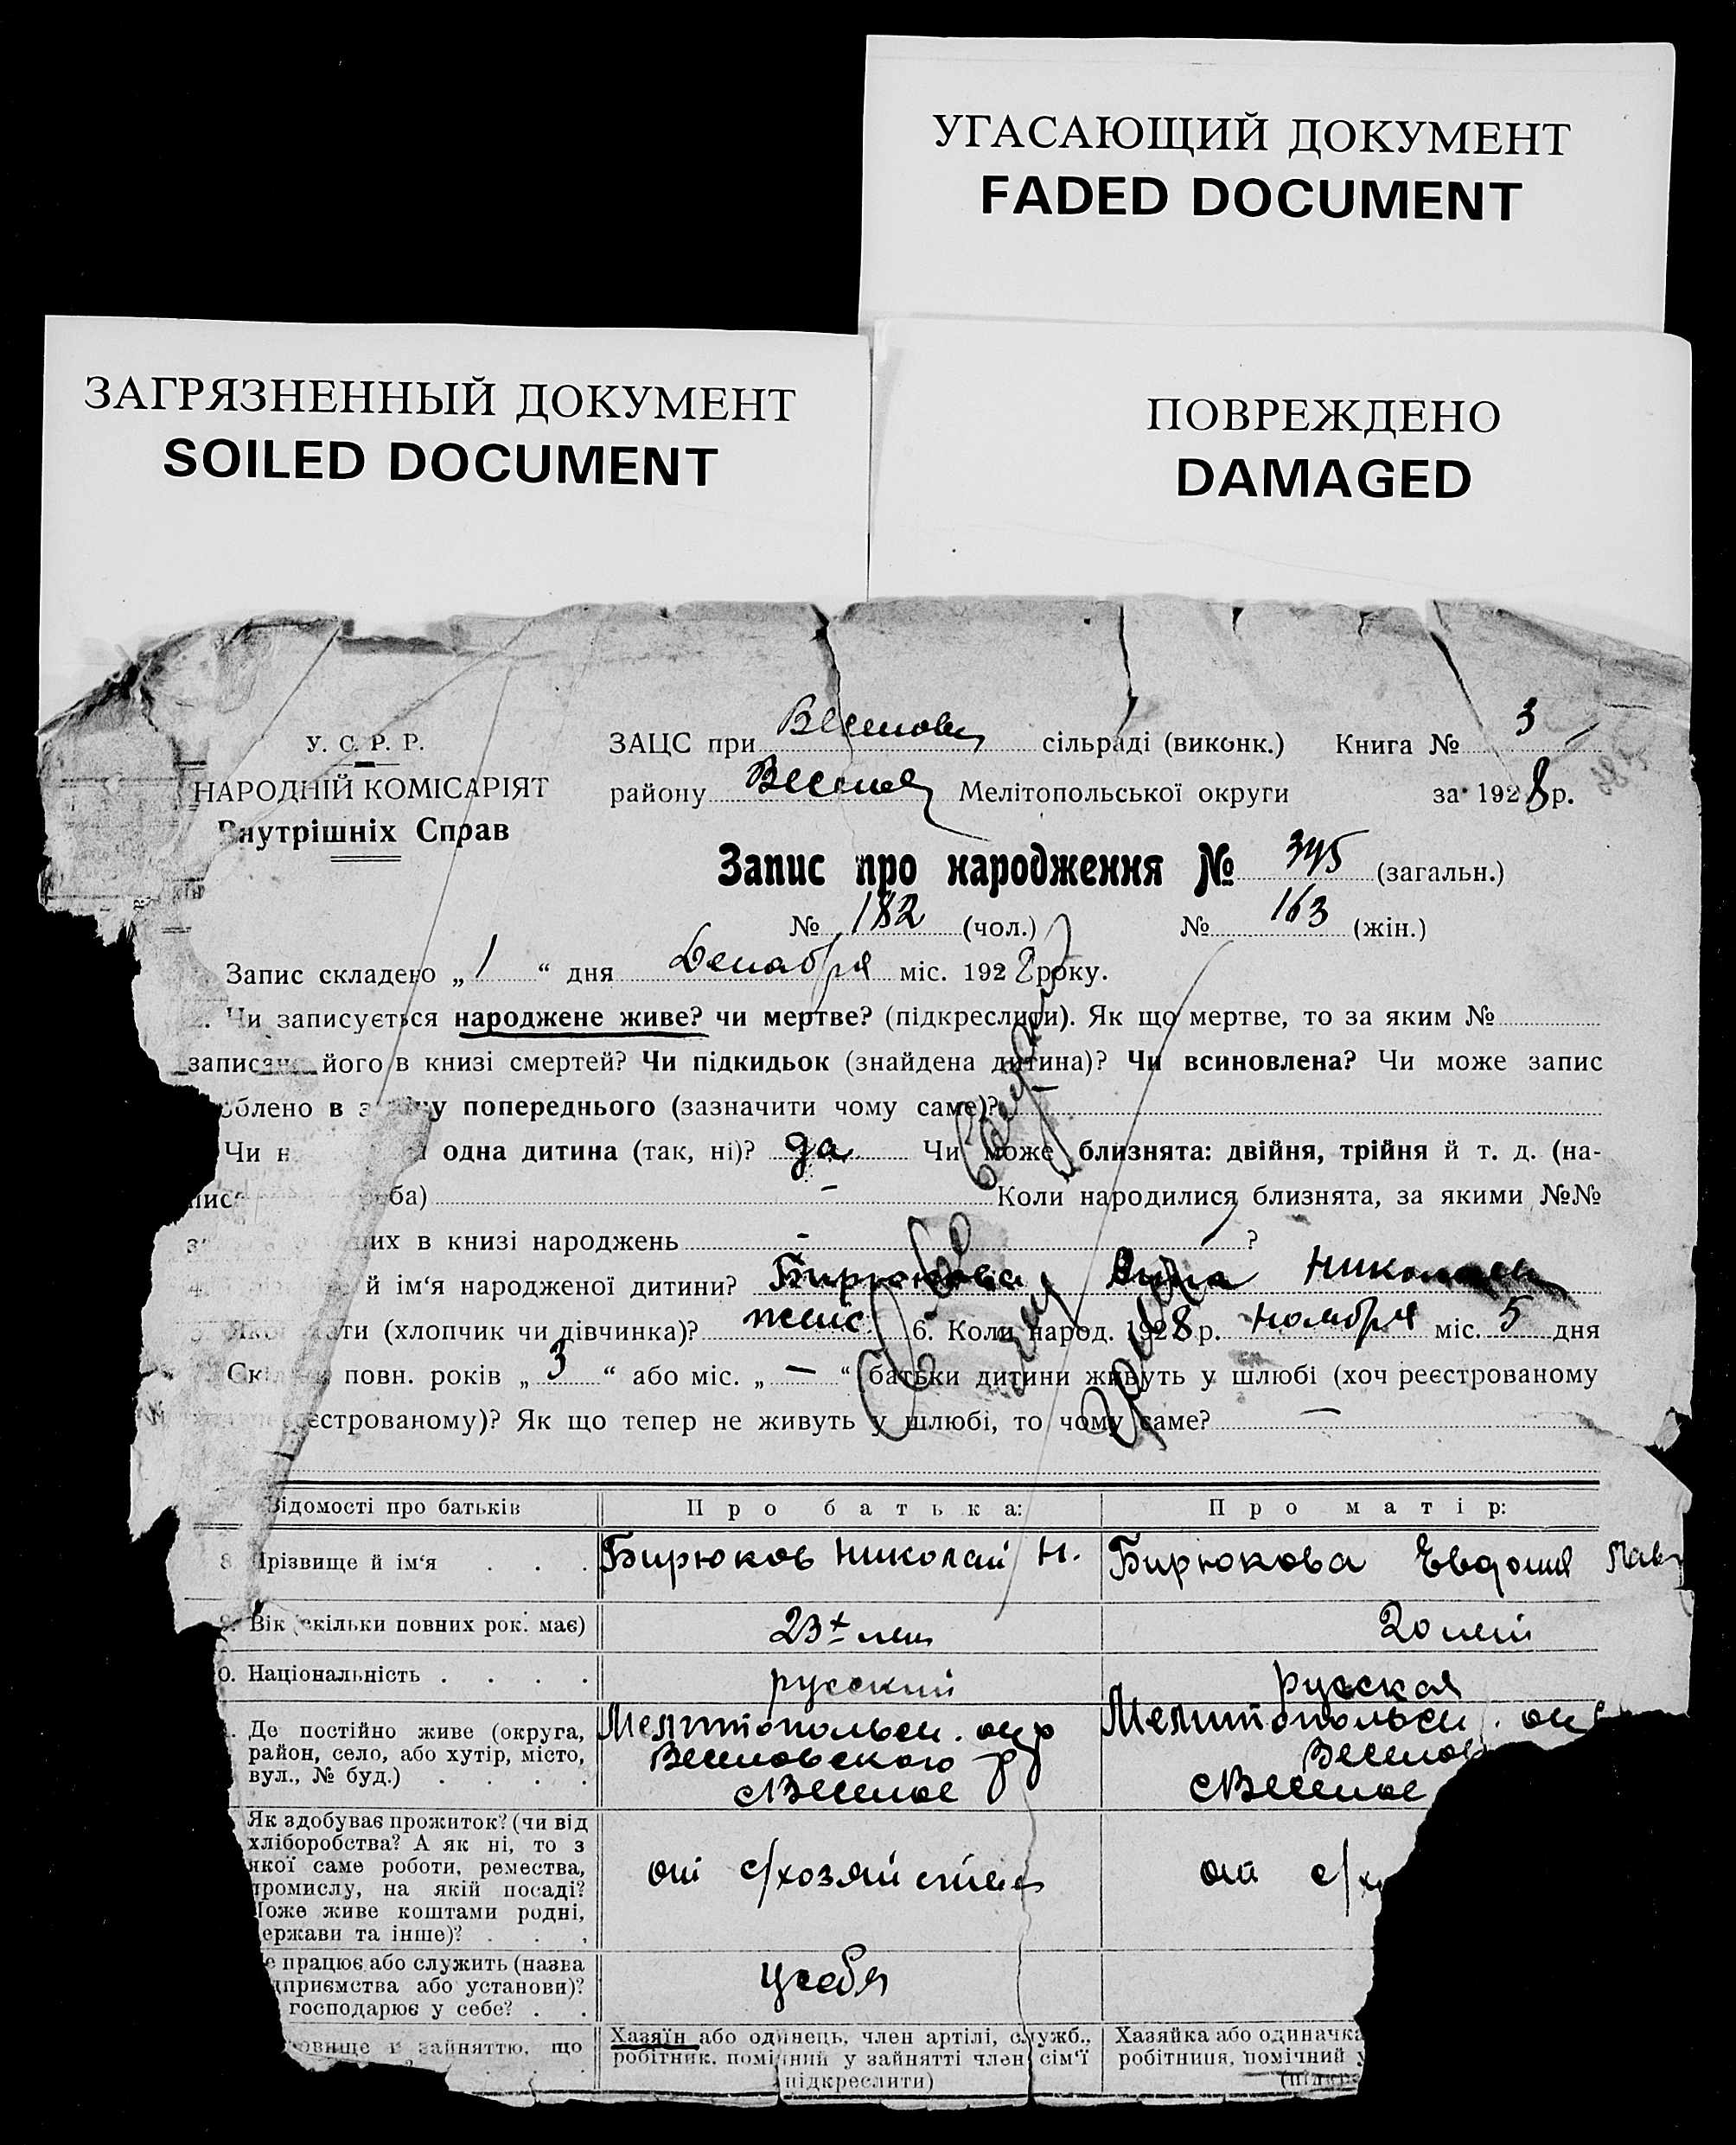 УГАСАЮЩИЙ ДОКУМЕНТ
FADED DOCUMENT
ЗАГРЯЗНЕННЫЙ ДОКУМЕНТ
SOILED DOCUMENT
ПОВРЕЖДЕНО
DAMAGED
У. С. Р. Р.
НАРОДНІЙ КОМІСАРІЯТ
Внутрішніх Справ
ЗАЦС при сільраді (виконк.) Книга № 3
району Мелітопольської округи за 1928 р.
Запис про народження № 345 (загальн.)
№ 182 (чол.) № 163 (жін.)
Запис складено „ 1 “ дня Декабря міс. 1928 року.
Чи записується народжене живе? чи мертве? (підкреслити). Як що мертве, то за яким №
його в книзі смертей? Чи підкидьок (знайдена дитина)? Чи всиновлена? Чи може запис
в попереднього (зазначити чому саме)?
Чи одна дитина (так, ні)? да Чи може близнята: двійня, трійня й т. д. (на-
ба) – Коли народилися близнята, за якими №№
их в книзі народжень - ?
й ім‘я народженої дитини? Бирюкова
(хлопчик чи дівчинка)? женс 6. Коли народ. 1928 р. ноября міс. 5 дня
повн. років „ 3 “ або міс. „ — “ батьки дитини живуть у шлюбі (хоч реєстрованому
єстрованому)? Як що тепер не живуть у шлюбі, то чому саме? —
Відомості про батьків Про батька: Про матір:
8. Прізвище й ім‘я . . . Бирюков Николай Н. Бирюкова Евдокия Пав
Вік (скільки повних рок. має) 23 лет 20 лет
0. Національність . . . . русский русская
Де постійно живе (округа, район, село, або хутір, місто, вул., № буд.) . . . .
Мелитопольск. окр Мелитопольск. ок
Веселовского р Весело
с Веселое с Веселое
Як здобуває прожиток? (чи від
хліборобства? А як ні, то з
якої саме роботи, ремества,
промислу, на якій посаді?
Може живе коштами родні,
ержави та інше)? . . .
от с/хозяйства от с/х
е працює або служить (назва
дприємства або установи)?
господарює у себе? . .
у себя
зайняттю, що
Хазяїн або одинець, член артілі, служб., Хазяйка або одиначка
робітник, помічний у зайнятті член сім‘ї робітниця, помічний у
(підкреслити)